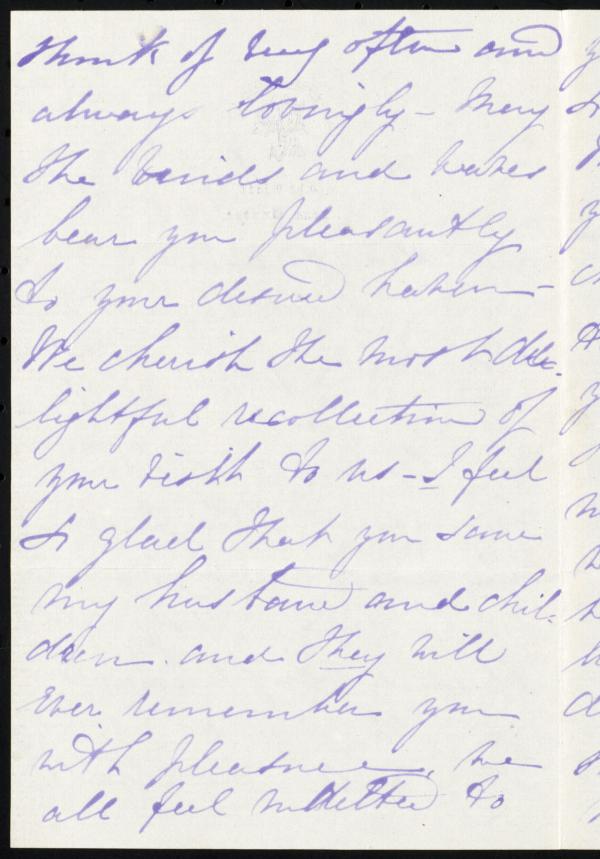 think of very often and
always lovingly - May
the winds and waves
bear you pleasantly
to your desired haven -
We cherish the most de-
lightful recollection of
your visit to us - I feel
so glad that you saw
my husband and chil-
dren. and they will
ever remember you
with pleasure. We
all feel indebted to